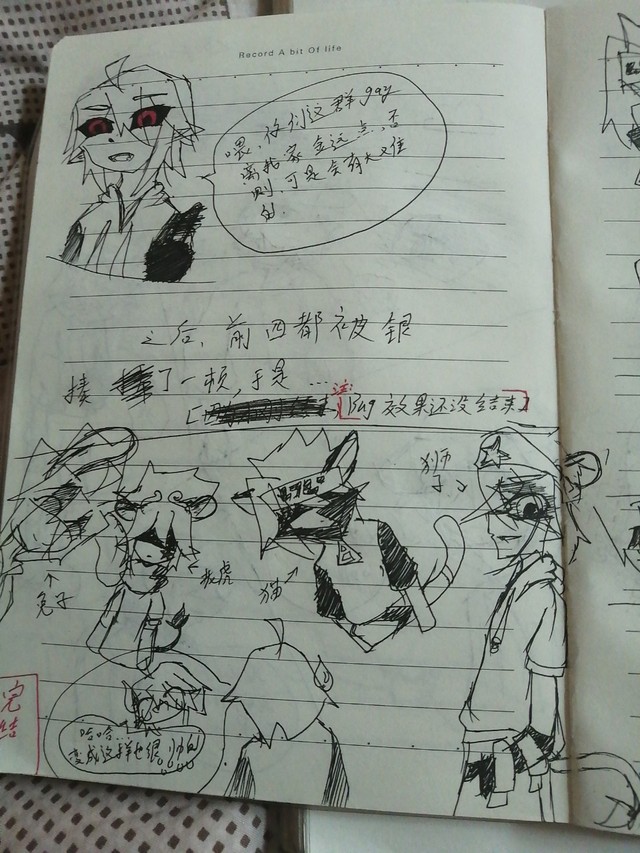 Record A bit Of life
喂,你们这群gay
离我家金远点,否
则可是会有大又佳
的.
之后,前四都被银
揍了一顿,于是……
注:
Bug效果还没结束
狮
子
兔子
猫
哈哈…
变成这样也很
完
结